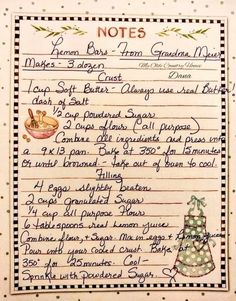 NOTES
Lemon Bars - From Grandma Meier
Makes - 3 dozen
Crust
1 cup Soft Butter - Always use real Butter
dash of Salt
1/2 cup Powdered Sugar
2 cups flours (all purpose)
Combine all ingredients and press into
a 9x13 pan. Bake at 350° for 15 minutes
Or until browned - take out of oven to cool.
Filling
4 eggs slightly beaten
2 cups granulated Sugar
1/4 cup all purpose Flour
6 tablespoons real Lemon juice
Combine flour, + Sugar. Mix in eggs + Lemon juice
Pour into your cooled Crust. Bake at
350° for 25 minutes. Cool -
Sprinkle with Powdered Sugar.